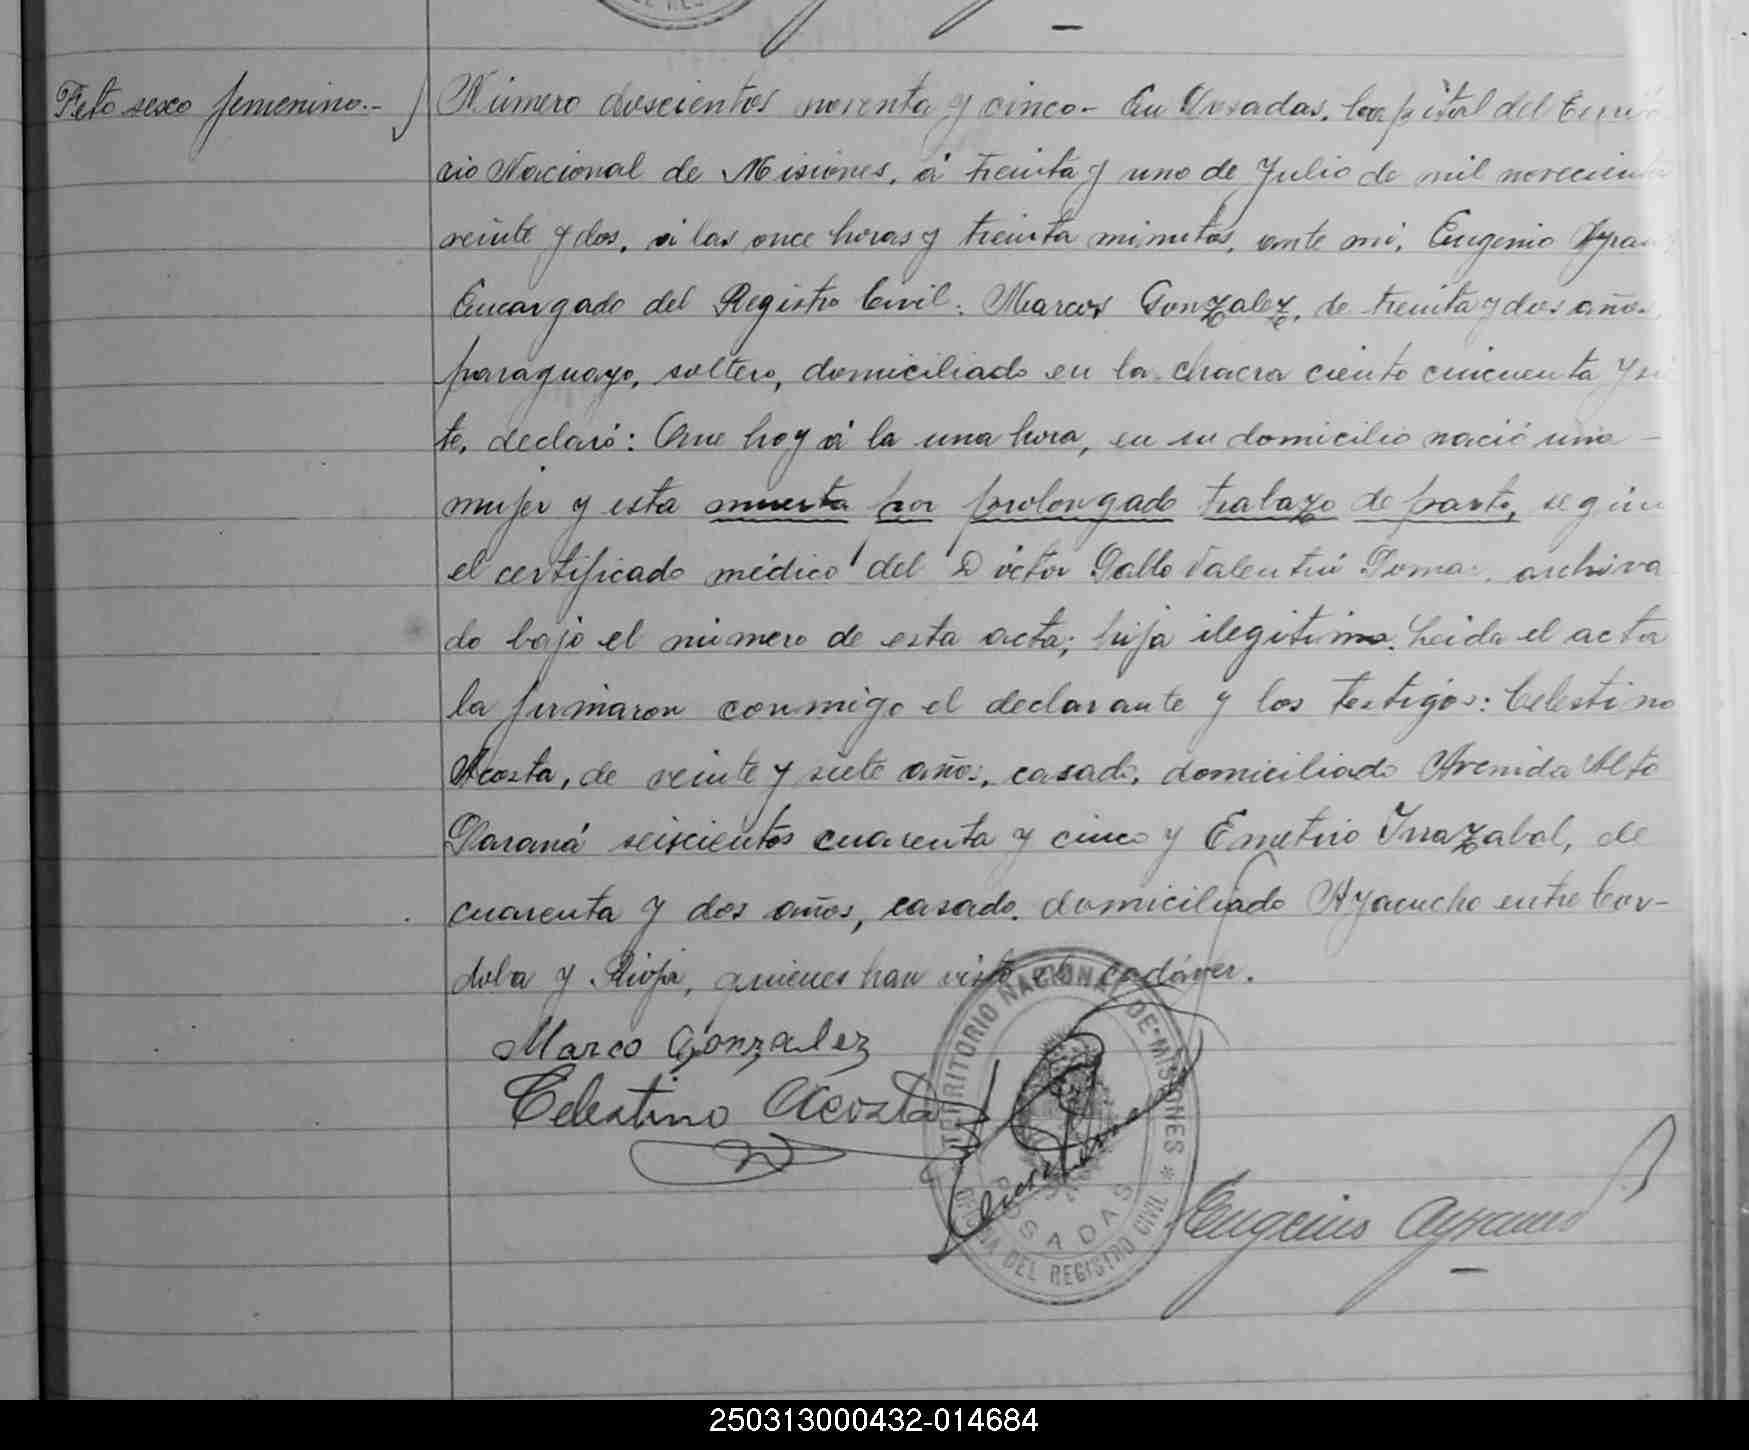 Feto sexo femenino.-
Número doscientos noventa y cinco- En Posadas, Capital del Territo
rio Nacional de Misiones, á treinta y uno de Julio de mil novecientos
veinte y dos, á las once horas y treinta minutos, ante mi, Eugenio
Encargado del Registro Civil: Marcos Gonzalez, de treinta y dos años,
paraguayo, soltero, domiciliado en la chacra ciento cincuenta y sie
te, declaró: Que hoy á la una hora, en su domicilio nació una -
mujer y esta muerta por prolongado trabazo de parto, según
el certificado médico del Doctor Pablo Valentín Poma, archiva
do bajo el número de esta acta; hija ilegitima. Leida el acta
la firmaron conmigo el declarante y los testigos: Celestino
Acosta, de veinte y siete años, casado, domiciliado Avenida Alto
Paraná seiscientos cuarenta y cinco y Emeterio Irrazabal, de
cuarenta y dos años, casado, domiciliado Ayacucho entre Cor-
doba y Rioja, quienes han visto el cadáver.
Marco Gonzalez
Celestino Acosta
TERRITORIO NACIONAL DE MISIONES
POSADAS
OFICINA DEL REGISTRO CIVIL
Eugenio
250313000432-014684